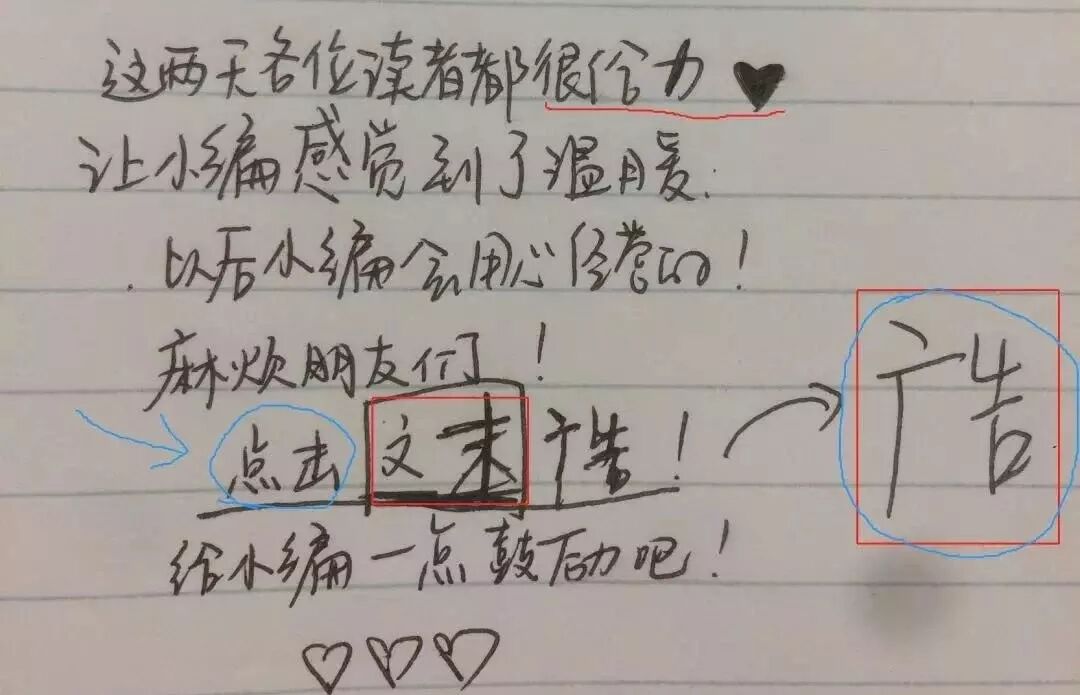 这两天各位读者都很给力
让小编感觉到了温暖.
以后小编会用心经营的！
麻烦朋友们！
点击文末广告！
广告
给小编一点鼓励吧！